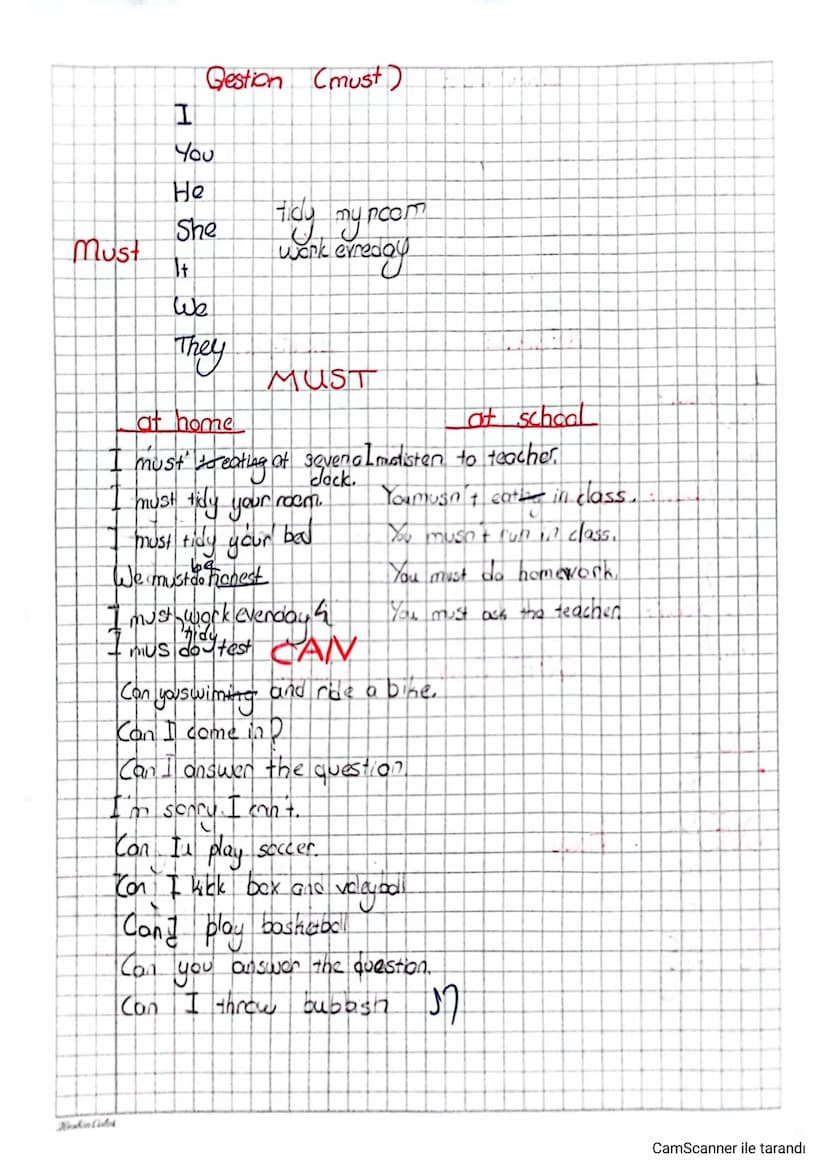 Qestion (must)
I
You
He
tidy my room
She
Must
work evreday
It
We
They
MUST
at home at school
I must eating at seven o listen to teacher.
clock.
I must tidy your room. You musn't eat in class.
I must tidy your bed You musn't run in class.
be
We must do honest You must do homework.
I must work everyday You must ask the teacher.
tidy
I mus do test CAN
Can you swiming and ride a bike.
Can I come in?
Can I answer the question.
I'm sorry. I can't.
Can I play soccer.
Can I kick box and voleyball
Can I play basketball
Can you answer the question.
Can I threw bubbish
CamScanner ile tarandı